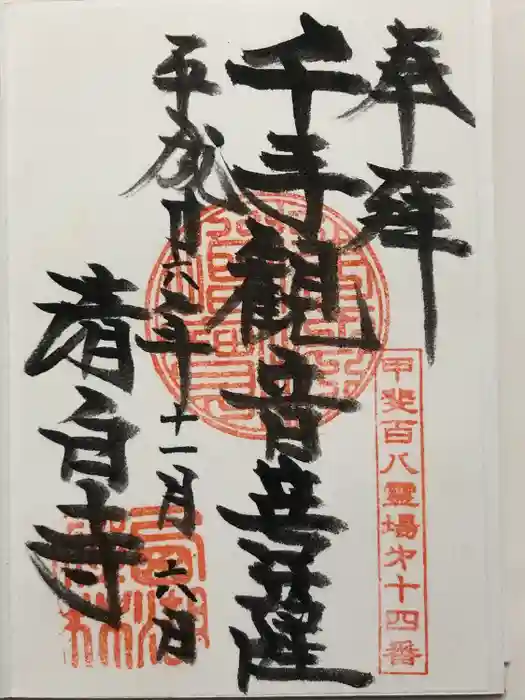 奉拝
甲斐百八霊場第十四番
千手観音菩薩
平成廿六年十一月六日
清白寺